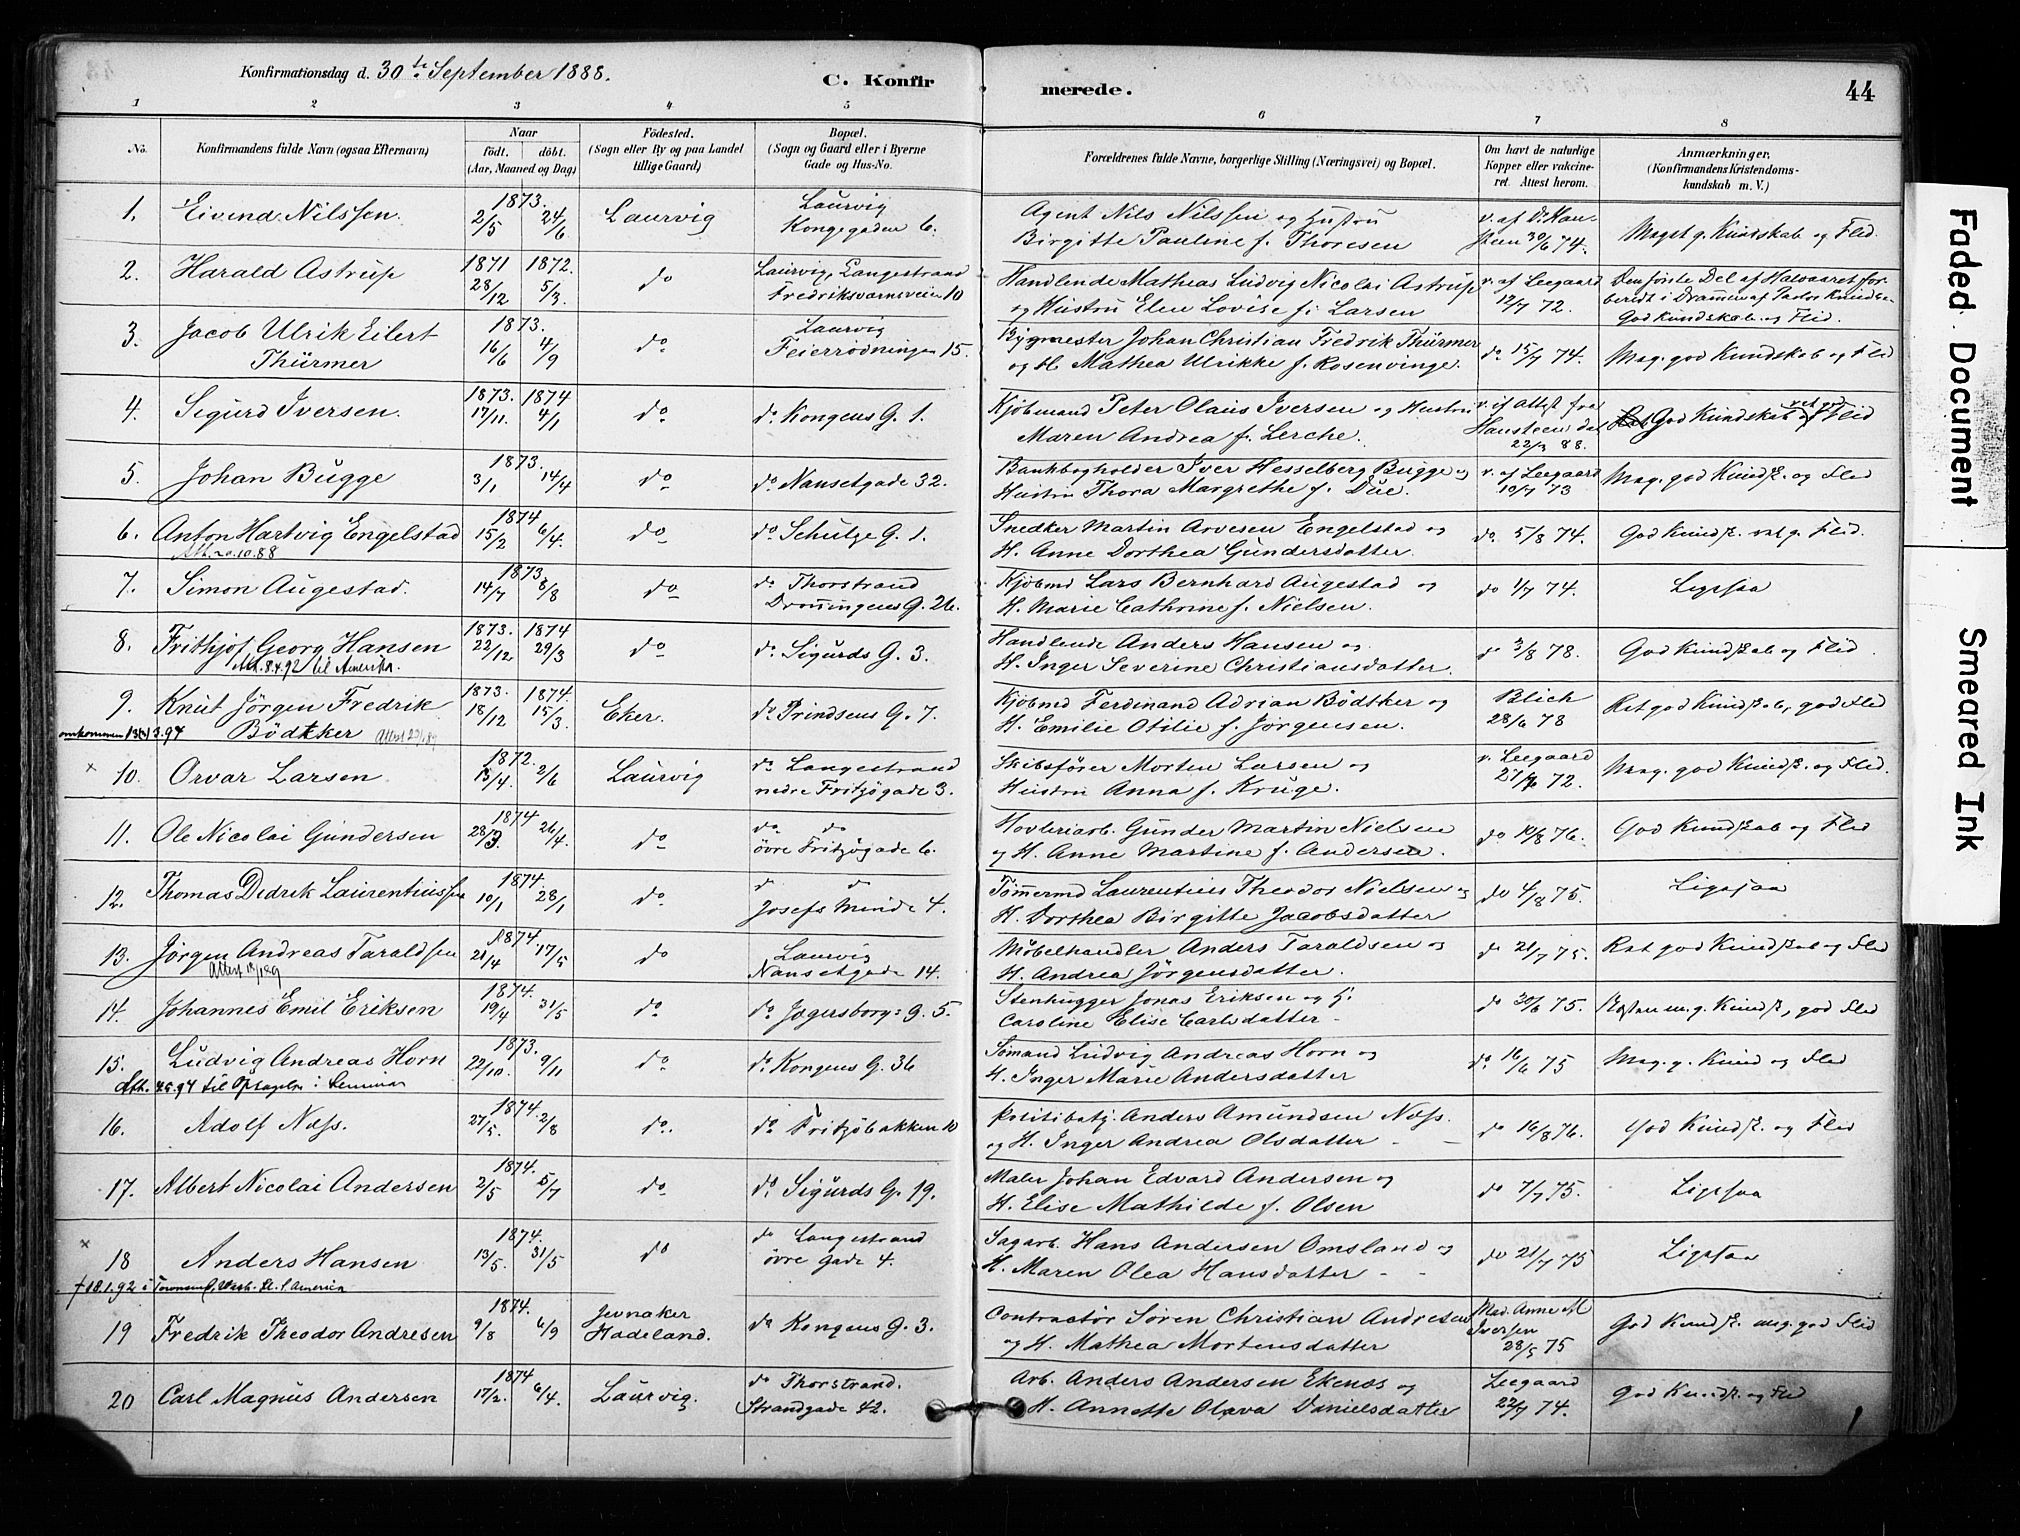 Konfirmationsdag d. 30te September 1888.
C. Konfirmerede.
44
1 2 3 4 5 6 7 8
No.
Konfirmandens fulde Navn (ogsaa Efternavn)
Naar
födt. döbt.
(Aar, Maaned og Dag)
Födested.
(Sogn eller By og paa Landet
tillige Gaard)
Bopæl.
(Sogn og Gaard eller i Byerne
Gade og Hus-No.
Forældrenes fulde Navne, borgerlige Stilling (Næringsvei) og Bopæl.
Om havt de naturlige
Kopper eller vakcine-
ret. Attest herom.
Anmærkninger.
(Konfirmandens Kristendoms-
kundskab m. V.)
1. Eivend Nilssen. 1873. 2/5 24/6 Laurvig Laurvig
Kongegaden 6.
Agent Nils Nilssen og Hustru
Birgitte Pauline f. Thoresen
v. af Dr. Han-
steen 30/6 74.
Meget g. Kundskab og Flid.
2. Harald Astrup 1871 28/12 1872. 5/3 do Laurvig, Langestrand
Fredriksværnsveien 10
Handlende Mathias Ludvig Nicolai Astrup
og Hustru Elen Lovise f. Larsen
v. af Leegaard
12/7 72.
Den förste Del af Halvaaret for-
beredt i Drammen af Pastor
God Kundskab og Flid.
3. Jacob Ulrik Eilert
Thürmer
1873. 16/6 4/9 do Laurvig
Feierrödningen 15.
Bygmester Johan Christian Fredrik Thürmer
og H. Mathea Ulrikke f. Rosenvinge.
do 15/7 74.
Meg. god Kundskab og Flid
4. Sigurd Iversen. 1873. 17/11. 1874 4/1 do do Kongens G. 1.
Kjöbmand Peter Olaus Iversen og Hustru
Maren Andrea f. Lerche.
v. if Attest fra
Hansteen dat
22/3 88.
God Kundskab og Flid
5. Johan Bugge 1873. 3/1 14/4 do do Nansetgade 32.
Bankbogholder Iver Hesselberg Bugge og
Hustru Thora Margrethe f. Due.
v. af Leegaard
10/7 73
Meg. god Kundsk. og Flid
6. Anton Hartvig Engelstad 1874. 15/2 6/4. do do Schultze G. 1.
Att. 20.10.88
Snedker Martin Arvesen Engelstad og
H. Anne Dorthea Gundersdatter.
do 5/8 74.
God Kundsk. ret g. Flid.
7. Simon Augestad. 1873. 14/7 8/8 do do Thorstrand
Dronningens G. 26.
Kjöbmd Lars Bernhard Augestad og
H. Marie Cathrine f. Nielsen.
do 1/7 74.
Ligesaa
8. Frithjof Georg Hansen 1873. 22/12 1874 29/3 do do Sigurds G. 3.
Att. 8.4.92 til Amerika.
Handlende Anders Hansen og
H. Inger Severine Christiansdatter.
do 3/8 78.
God Kundskab og Flid.
9. Knut Jörgen Fredrik
Bödtker
1873. 18/12 1874. 15/3. Eker. do Prindsens G. 7.
Kjöbmd Ferdinand Adrian Bödtker og
H. Emilie Otilie f. Jörgensen.
Blich
28/6 78
Ret god Kundskab, god Flid
10. Orvar Larsen 1872. 13/4. 2/6 Laurvig do Langestrand
nedre Fritzögade 3.
Skibsförer Morten Larsen og
Hustru Anna f. Kruge.
v. Leegaard
72.
Meg. god Kundsk. og Flid.
11. Ole Nicolai Gundersen 1874 28/3 26/4. do do do
övre Fritzögade 6.
Hovleriarb. Gunder Martin Nielsen
og H. Anne Martine f. Andersen.
do 10/8 76.
God Kundskab og Flid
12. Thomas Didrik Laurentiussen 1874. 10/1 28/1 do do do
Josefs Minde 4.
Tömmermd Laurentius Theodor Nielsen og
H. Dorthea Birgitte Jacobsdatter
do 4/8 75.
Ligesaa
13. Jörgen Andreas Taraldsen 1874. 21/4 17/5 do Laurvig
Nansetgade 14.
Möbelhandler Anders Taraldsen og
H. Andrea Jörgensdatter.
do 21/7 75.
Ret god Kundskab og Flid
14. Johannes Emil Eriksen 1874. 19/4 31/5 do do Jegersborgs G. 5.
Stenhugger Jonas Eriksen og H.
Caroline Elise Carlsdatter -
do 30/6 75.
Næsten m. g. Kundsk., god Flid
15. Ludvig Andreas Horn 1873. 22/10. 9/11 do do Kongens G. 36
Att. 4.5.94 til Optagelse i Seminar
Sömand Ludvig Andreas Horn og
H. Inger Marie Andersdatter
do 16/6 75
Meg. g. Kund og Flid
16. Adolf Næss. 1874. 27/5. 2/8 do. do Fritzöbakken 10
Politibetj. Anders Amundsen Næss.
og H. Inger Andrea Olsdatter - -
do 16/8 76.
God Kundsk. og Flid
17. Albert Nicolai Andersen 1874. 2/5 5/7 do do Sigurds G. 19.
Maler Johan Edvard Andersen og
H. Elise Mathilde f. Olsen
do 7/7 75.
Ligesaa
18 Anders Hansen 1874. 13/5. 31/5 do do Langestrand
övre Gade 4.
† 18.1.92 i
Sagarb. Hans Andersen Omsland og
H. Maren Olea Hansdatter - -
do 21/7 75
Ligesaa
19 Fredrik Theodor Andresen 1874. 9/8 6/9 Jevnaker
Hadeland.
do Kongens G. 3.
Contractör Sören Christian Andresen
og H. Mathea Mortensdatter
Mad. Anne M
Iversen
28/5 75
God Kundsk. meg. god Flid
20 Carl Magnus Andersen 1874 17/2. 6/4. Laurvig. do Thorstrand.
Strandgade 42.
Arb. Anders Andersen Ekenæs og
H. Annette Olava Danielsdatter
Leegaard
22/7 74.
God Kundsk. og Flid
Faded Document
Smeared Ink